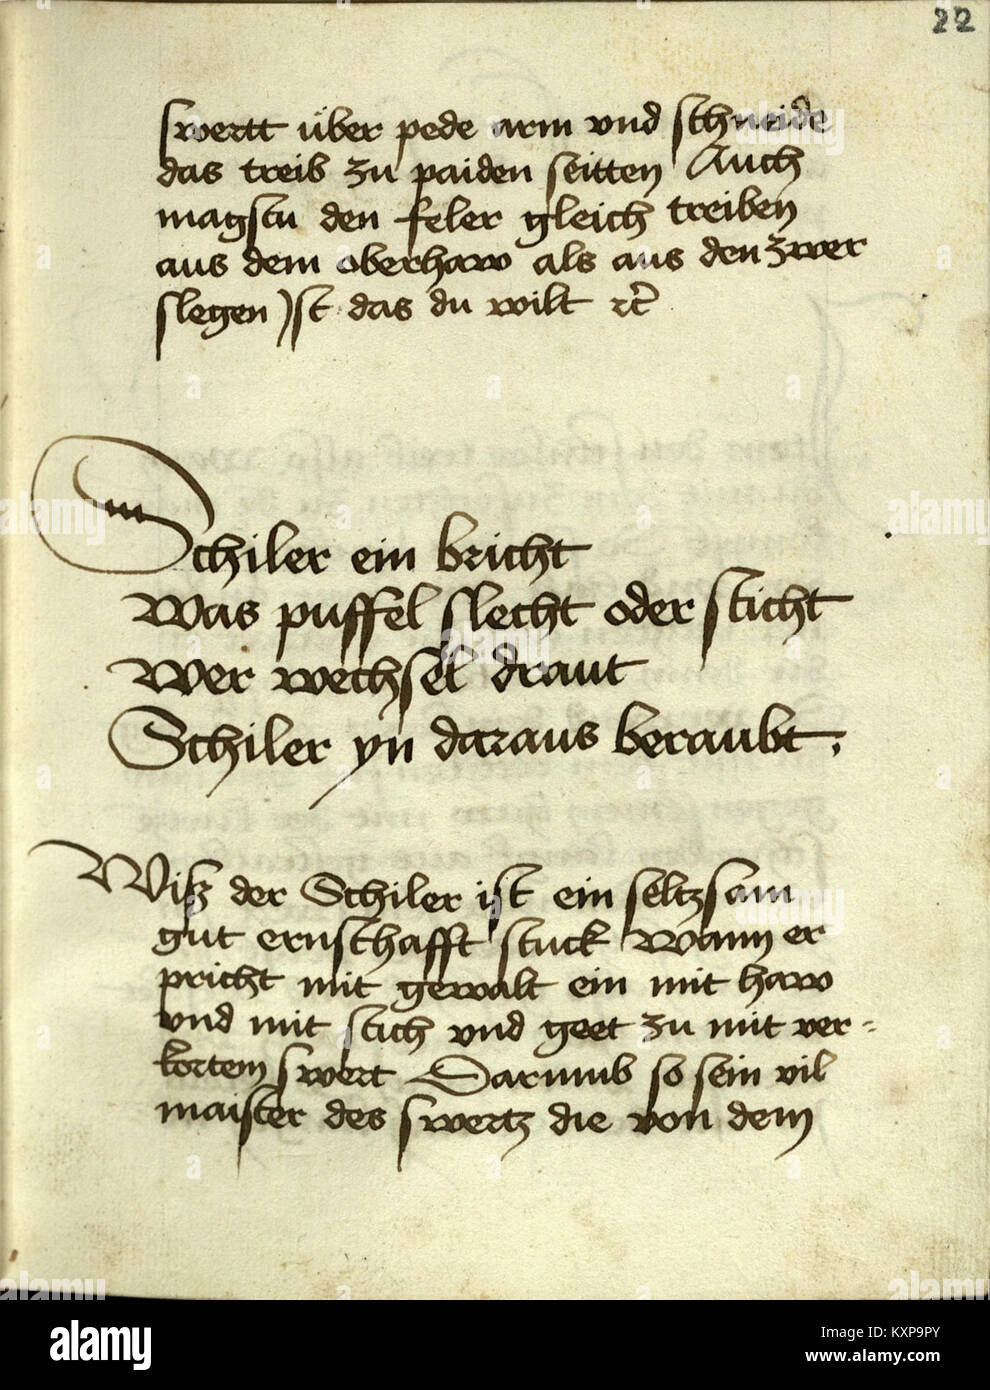 22
swertt über pede arm vnd schneide
das treib zu paiden seitten Auch
magstu den feler gleich treiben
aus dem oberhaw als aus den zwer
slegen Ist das du wilt rc̄
Schiler ein bricht
Was puffel slecht oder sticht
Wer wechsel draut
Schiler yn daraus beraubt.
Wisz der Schiler ist ein seltzsam
gut ernsthafft stuck Wann er
pricht mit gewalt ein mit haw
vnd mit stich vnd geet zu mit ver=
kortem swert Darumb so sein vil
maister des swertz die von dem
alamy
Image ID: KXP9PY
www.alamy.com